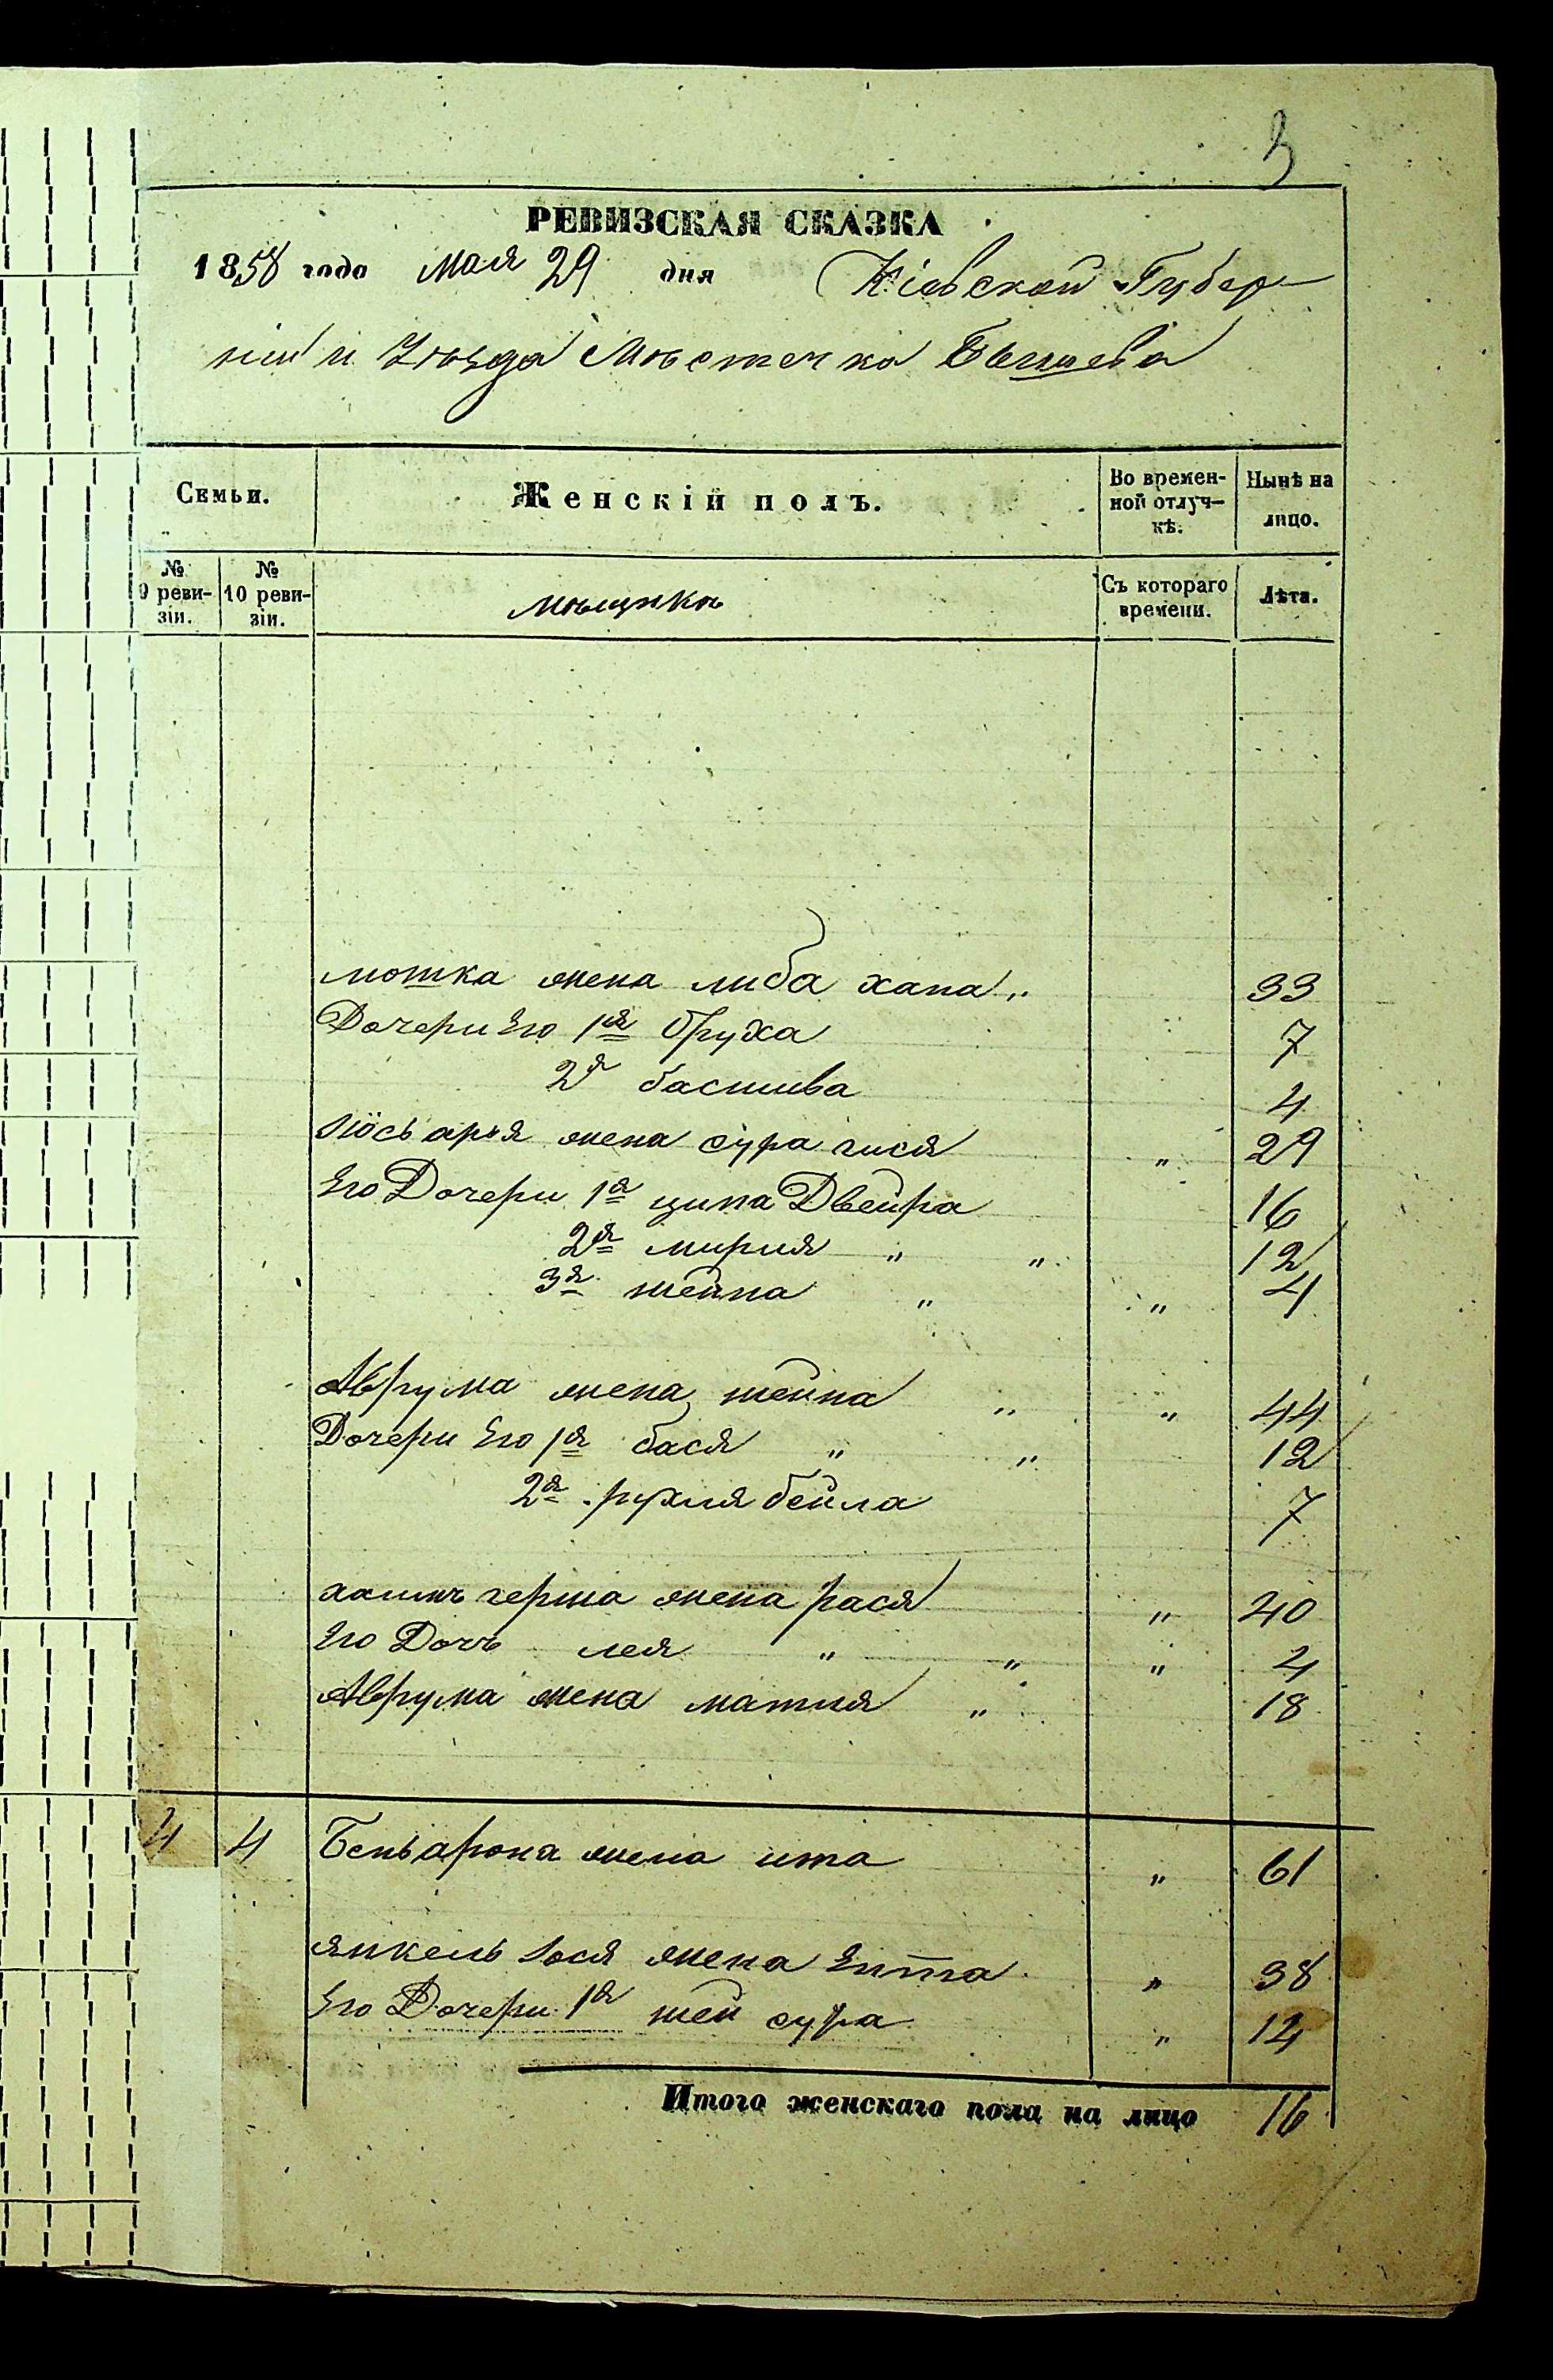 3
РЕВИЗСКАЯ СКАЗКА
1858 года Мая 29 дня Кіевской Губер-
ніи и Уѣзда Мѣстечка Бышева
Семьи. Женскій полъ. Во времен-ной отлуч-кѣ. Нынѣ на лицо.
№ 9 реви-зіи. № 10 реви-зіи. мѣщанкѣ Съ котораго времени. Лѣта.
мошка жена либа хана „ 33
Дочери Его 1я бруха 7
2я басшива 4
Іось арья жена сура гися „ 29
Его Дочери 1я ципа Двейра 16
2я мирия „ „ 12
3я шейна „ „ 4
Аврума жена шейна „ „ 44
Дочери Его 1я бася „ „ 12
2я рухля бейла 7
хаимъ герша жена рася „ 40
Его Дочь лея „ „ „ 4
Аврума жена матля „ 18
4 4 Беньарона жена ита „ 61
янкель Іося жена Ента „ 38
Его Дочери 1я шей сура „ 14
Итого женскаго пола на лицо 16